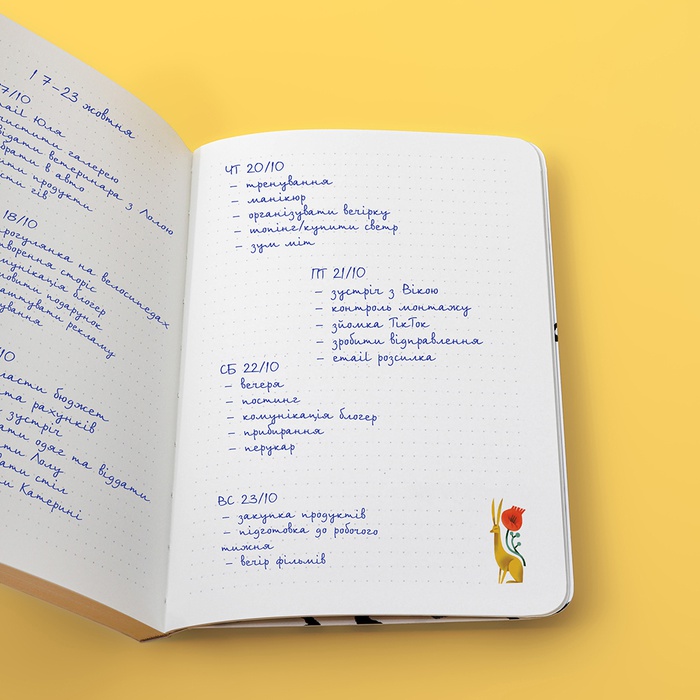 17-23 жовтня
7/10
email Юля
чистити галерею
відати ветеринара з Лолою
брати в авто
ити продукти
сти гів
18/10
рогулянка на велосипедах
творення сторіс
мунікація блогер
мовити подарунок
аштувати рекламу
ування
/10
ласти бюджет
та рахунків
зустріч
ати одяг та віддати
ти Лолу
вати стіл
и Катерині
ЧТ 20/10
– тренування
– манікюр
– організувати вечірку
– шопінг/купити светр
– зум міт
ПТ 21/10
– зустріч з Вікою
– контроль монтажу
– зйомка ТікТок
– зробити відправлення
– email розсилка
СБ 22/10
– вечеря
– постинг
– комунікація блогер
– прибирання
– перукар
ВС 23/10
– закупка продуктів
– підготовка до робочого
тижня
– вечір фільмів